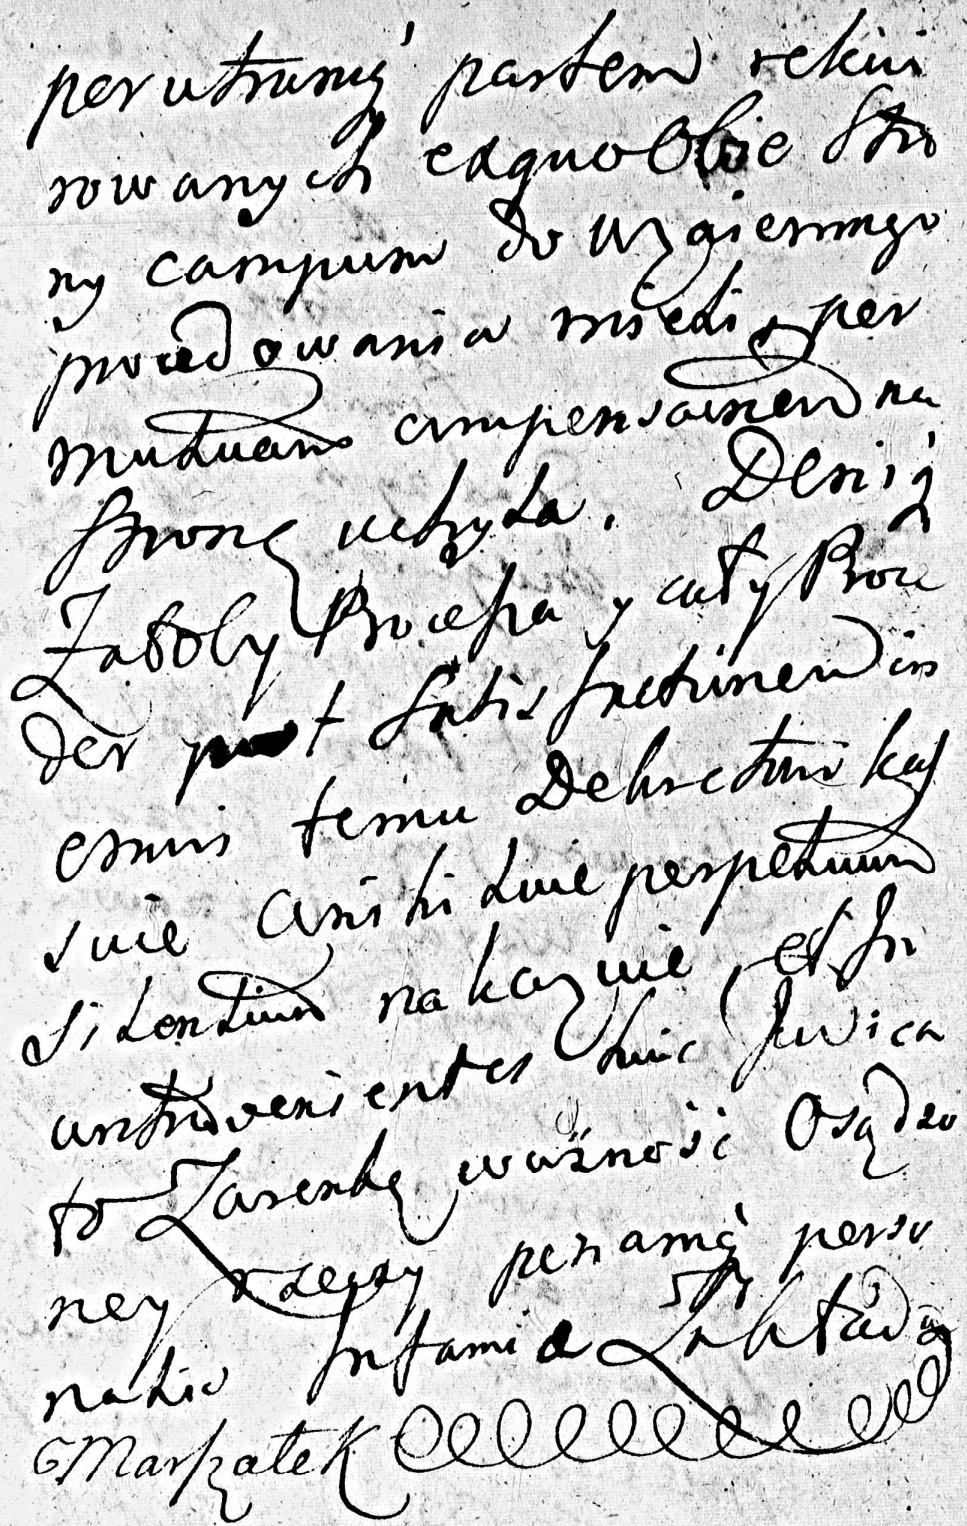 per utrumq partem rekwi
rowanych exquo Obie Stro
ny campum do wzaiemnego
procedowania mieli, per
mutuam compensationem na
stronę uchyla. Deniq
Zaboby Processa y cały Proce
der post Satisfactionem in
emnis temu Dekretowi kas
suie Actis hi tuie perpetuum
silentium nakazuie, et In
contravenientes huic Iudica
to Zarękę ważność Osądzo
ney rzeczy pœnamq perso
nalis Infamiæ Zakłada
Marszałek